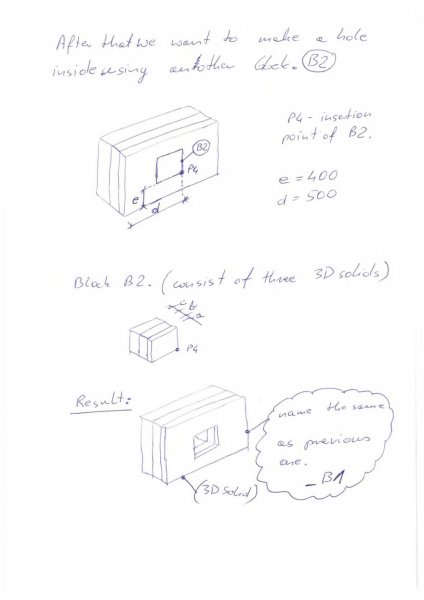 After that we want to make a hole
inside using another block. B2
B2
P4
e
d
P4 - insertion
point of B2.
e = 400
d = 500
Block B2. (consist of three 3D solids)
c b a
P4
Result:
name the same
as previous
one.
_B1
(3D solid)